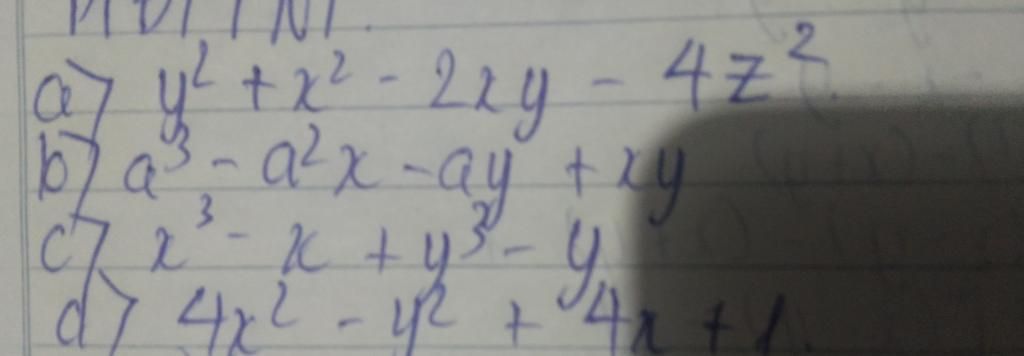 a) y² + x² - 2xy - 4z²
b) a³ - a²x - ay + xy
c) x³ - x + y³ - y
d) 4x² - y² + 4x + 1